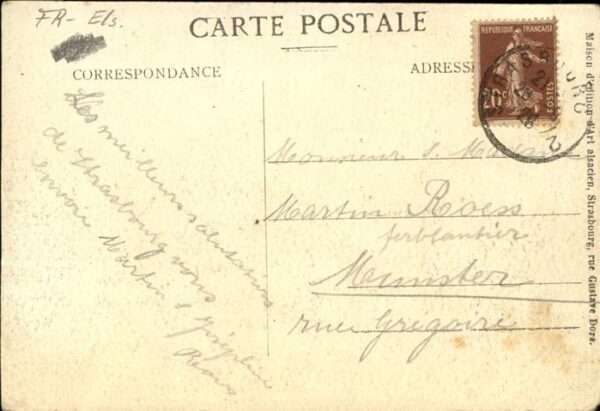 FR- Els.
CARTE POSTALE
CORRESPONDANCE
ADRESSE
REPUBLIQUE FRANÇAISE
POSTES
STRASBOURG
Les meilleurs salutations
de Strasbourg vous
envoie Martin &
Monsieur & Madame
Martin Roess
ferblantier
Munster
rue Gregoire
Maison d'édition d'Art alsacien, Strasbourg, rue Gustave Doré.